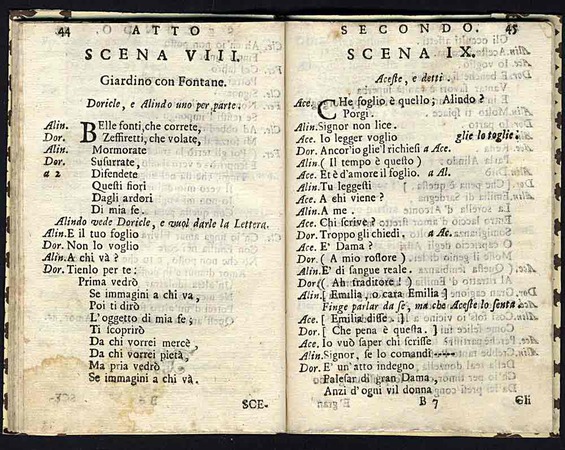 44 ATTO
SCENA VIII.
Giardino con Fontane.
Doricle, e Alindo uno per parte.
Alin. BElle fonti, che correte,
Dor. Zeffiretti, che volate,
Alin. Mormorate
Dor. Susurrate,
a 2 Difendete
Questi fiori
Dagli ardori
Di mia fe.
Alindo vede Doricle, e vuol darle la Lettera.
Alin. E il tuo foglio
Dor. Non lo voglio
Alin. A chi và?
Dor. Tienlo per te:
Prima vedrò
Se immagini a chi va,
Poi ti dirò
L'oggetto di mia fe;
Ti scoprirò
Da chi vorrei mercè
Da chi vorrei pietà,
Ma pria vedrò
Se immagini a chi và.
SCE-
SECONDO. 45
SCENA IX.
Aceste, e detti.
Ace. CHe foglio è quello; Alindo?
Porgi.
Alin. Signor non lice.
Ace. Io legger voglio glie lo toglie.
Dor. Ancor'io glie'l richiesi a Ace.
Alin. ( Il tempo è questo )
Ace. Et è d'amore il foglio. a Al.
Alin. Tu leggesti
Ace. A chi viene?
Alin. A me.
Ace. Chi scrive?
Dor. Troppo gli chiedi. a Ac.
Ace. E' Dama?
Dor. ( A mio rossore )
Alin. E' di sangue reale.
Dor. ( Ah traditore! )
Alin. [ Emilia, o cara Emilia ]
Finge parlar da sè, ma che Aceste lo senta.
Ace. [ Emilia disse. ]
Dor. [ Che pena è questa. ]
Ace. Io vuò saper chi scrisse
Alin. Signor, se lo comandi
Dor. E' un'atto indegno
Palesar di gran Dama,
Anzi d'ogni vil donna
B 7 Gli